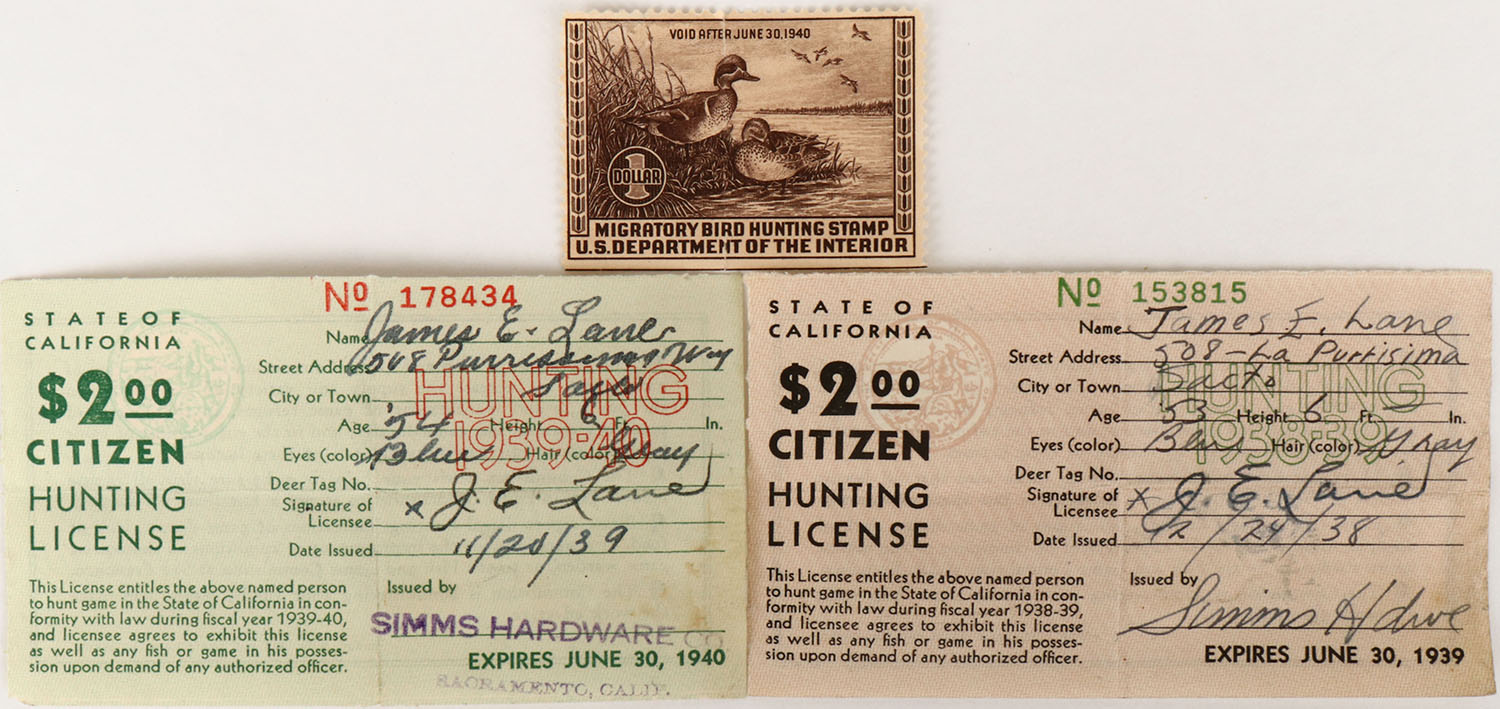 VOID AFTER JUNE 30, 1940
1
DOLLAR
MIGRATORY BIRD HUNTING STAMP
U.S. DEPARTMENT OF THE INTERIOR
STATE OF
CALIFORNIA
$2.00
CITIZEN
HUNTING
LICENSE
This License entitles the above named person
to hunt game in the State of California in con-
formity with law during fiscal year 1939-40,
and licensee agrees to exhibit this license
as well as any fish or game in his posses-
sion upon demand of any authorized officer.
No 178434
Name James E. Lane
Street Address 508 Way
City or Town Sacto
HUNTING
1939-40
Age 54 Height 6 Ft. In.
Eyes (color) Blue Hair (color) Gray
Deer Tag No.
Signature of
Licensee x J. E. Lane
Date Issued 11/20/39
Issued by
SIMMS HARDWARE CO
EXPIRES JUNE 30, 1940
SACRAMENTO, CALIF.
STATE OF
CALIFORNIA
$2.00
CITIZEN
HUNTING
LICENSE
This License entitles the above named person
to hunt game in the State of California in con-
formity with law during fiscal year 1938-39,
and licensee agrees to exhibit this license
as well as any fish or game in his posses-
sion upon demand of any authorized officer.
No 153815
Name James E. Lane
Street Address 508-La Purrisima
City or Town Sacto
HUNTING
1938-39
Age 53 Height 6 Ft. In.
Eyes (color) Hair (color) Gray
Deer Tag No.
Signature of
Licensee x J. E. Lane
Date Issued 12/24/38
Issued by
Simms Hdwe
EXPIRES JUNE 30, 1939